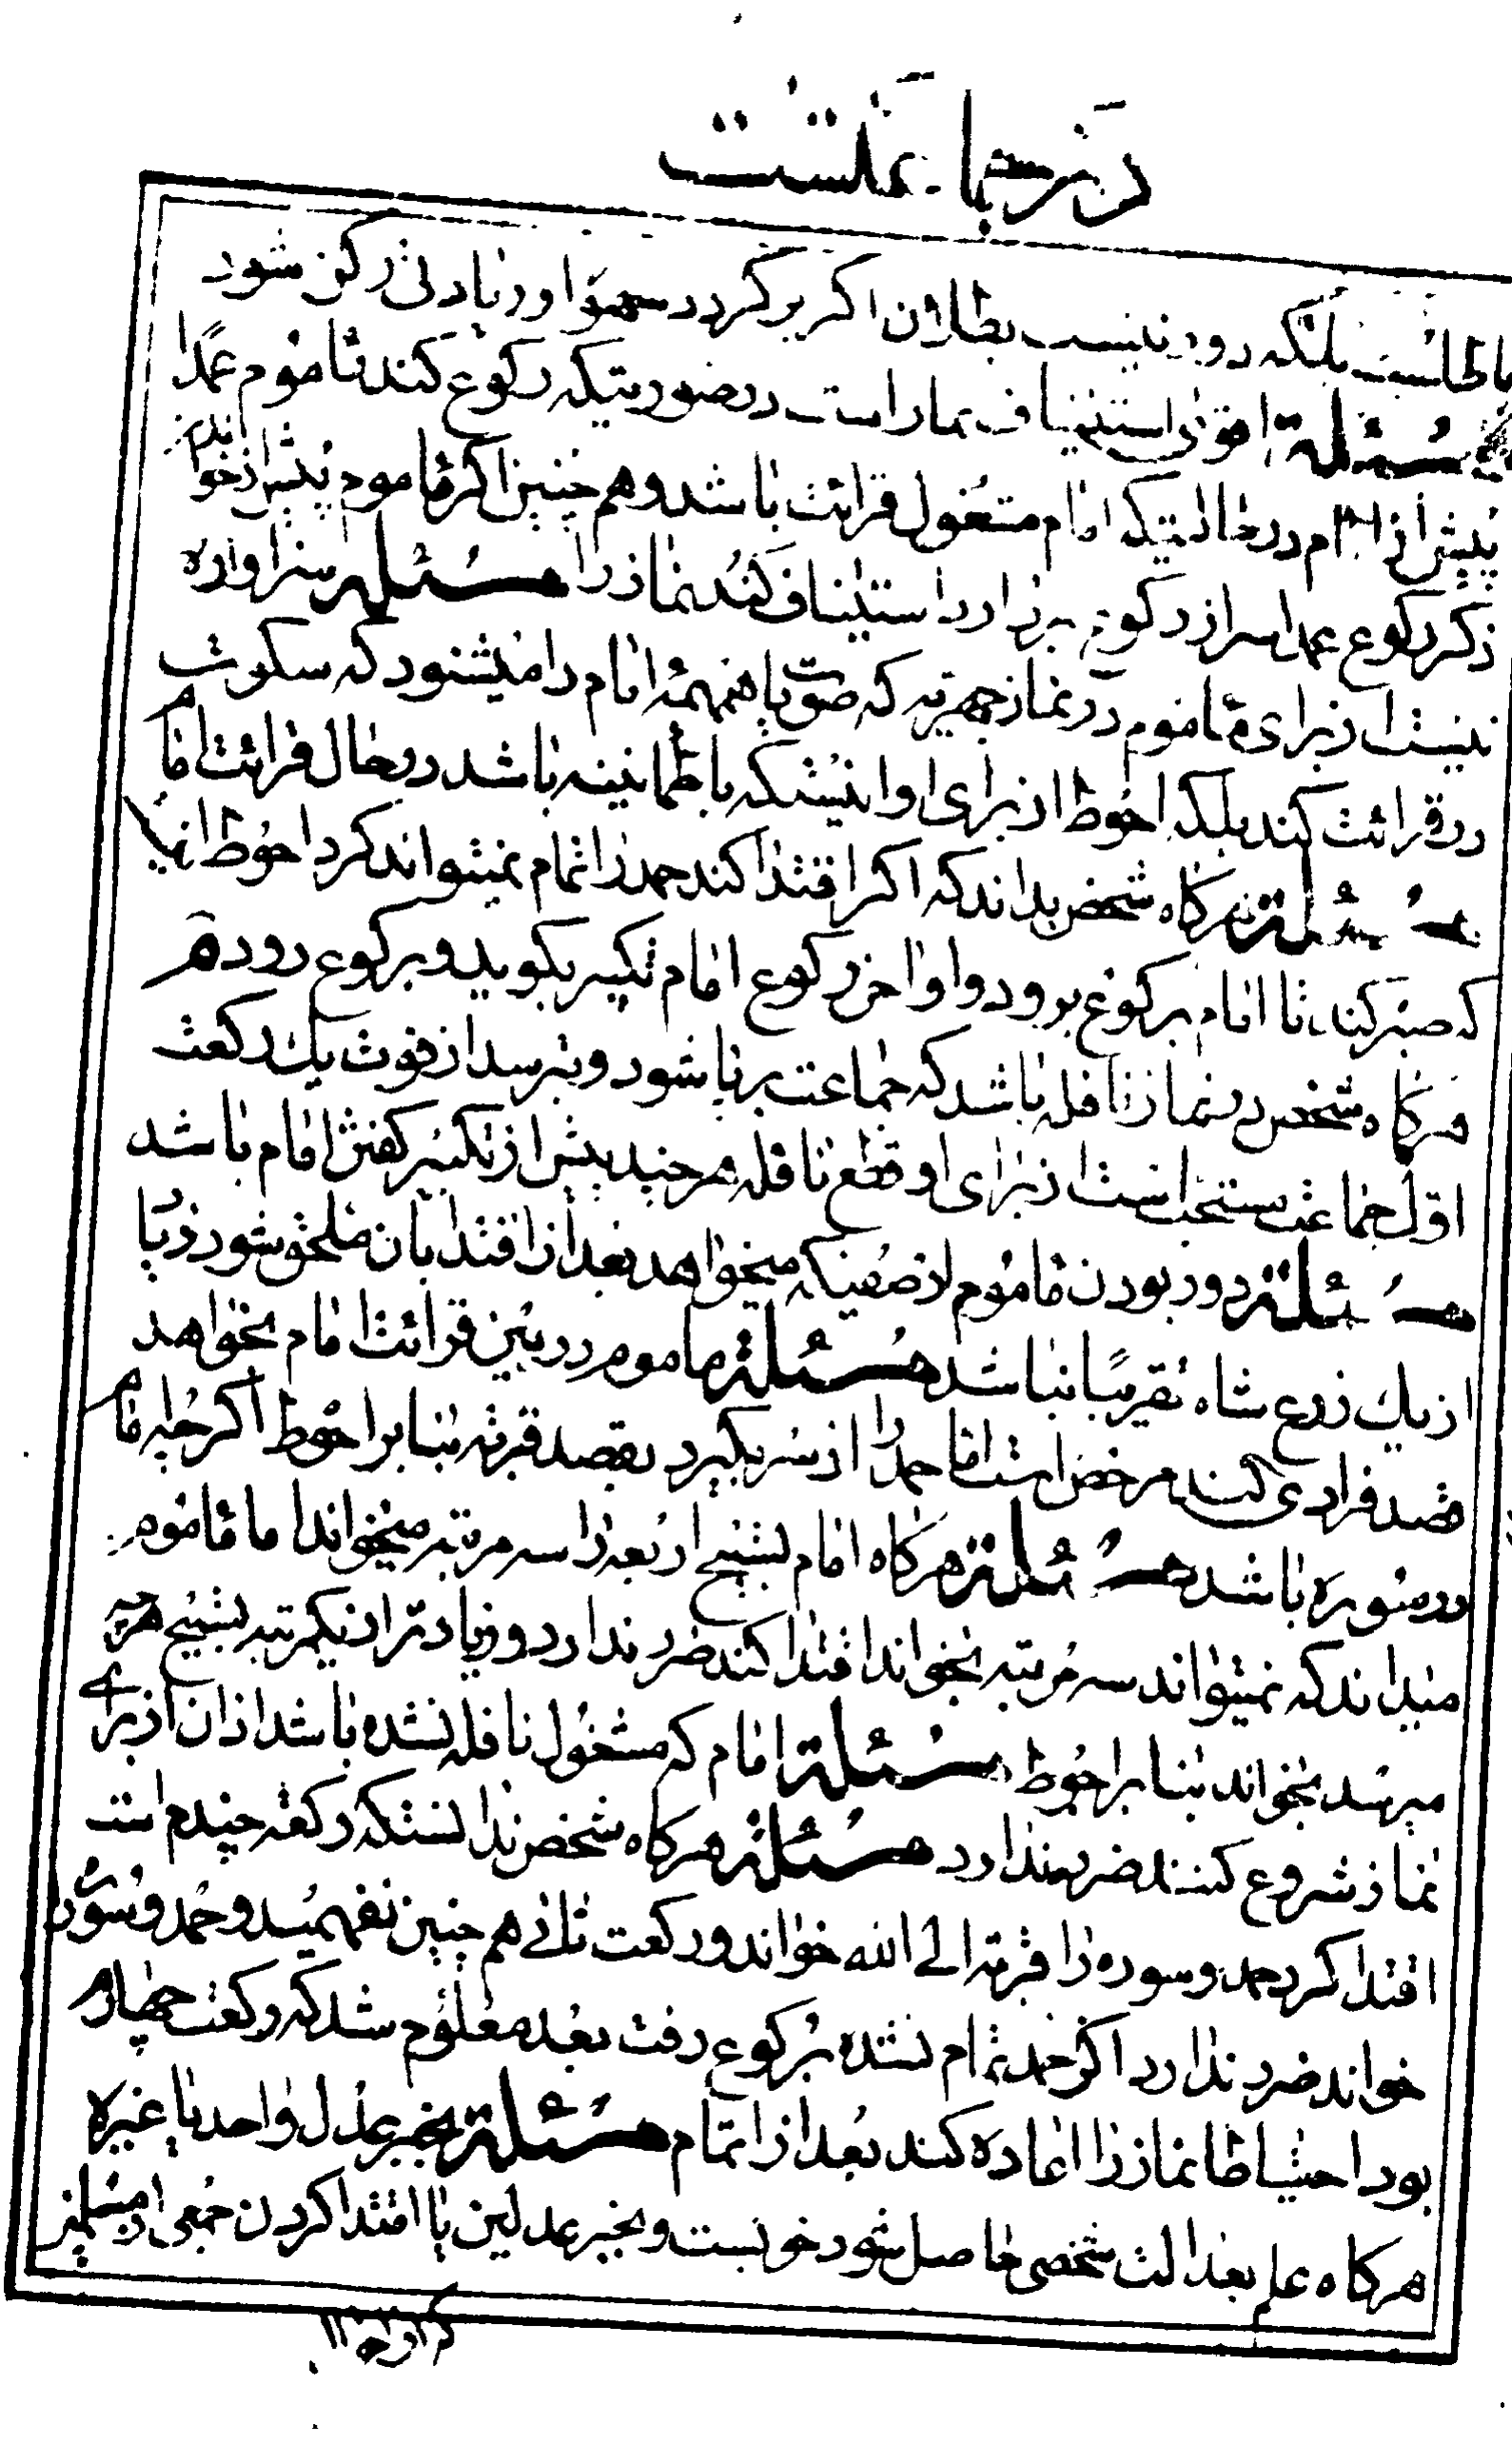 در نماز جماعتست
باطلست بلکه دور نیست بطلان اکر برکردد سهوا و زیادتی رکن شود
مسئلة اقوی استیناف نماز است در صورتیکه رکوع کند ماموم عمدا
پیش از امام در حالتیکه امام مشغول قرائت باشد و هم چنین اکر ماموم پیش از خواندن
ذکر رکوع عمدا سر از رکوع بردارد استیناف کند نماز را مسئله سزاوار
نیست از برای ماموم در نماز جهریه که صوت یا همهمه امام را میشنود که سکوت
در قرائت کند بلکه احوط از برای او اینستکه با طمانینه باشد در حال قرائت امام
مسئلة هرکاه شخص بداند که اکر اقتدا کند حمد را تمام نمیتواند کرد احوط آنست
که صبر کند تا امام برکوع برود و اواخر رکوع امام تکبیر بکوید و برکوع رود
هرکاه شخص در نماز نافله باشد که جماعت برپا شود و بترسد از فوت یك رکعت
اول جماعت مستحب است از برای او قطع نافله هر چند پیش از تکبیر کفتن امام باشد
مسئلة دور بودن ماموم از صفیکه میخواهد بعد از اقتدا بان ملحق شود زیاده
از یك زرع شاه تقریبا نباشد مسئلة ماموم در بین قرائت امام بخواهد
قصد فرادی کند مرخص است اما حمد را از سر بکیرد بقصد قربة بنا بر احوط اکر چه امام
در سوره باشد مسئلة هرکاه امام تسبیح اربعه را سه مرتبه میخواند اما ماموم
میداند که نمیتواند سه مرتبه بخواند اقتدا کند ضرر ندارد و زیادتر از یکمرتبه تسبیح هر چه
میرسد بخواند بنا بر احوط مسئلة امام که مشغول نافله نشده باشد اذان از برای
نماز شروع کنند ضرر ندارد مسئلة هرکاه شخص ندانستکه رکعة چندم است
اقتدا کرد حمد و سوره را قربة الی الله خواند و رکعت ثانی هم چنین نفهمید و حمد و سوره
خواند ضرر ندارد اکر حمد تمام نشده برکوع رفت بعد معلوم شد که رکعت چهارم
بود احتیاطا نماز را اعاده کند بعد از اتمام مسئلة بخبر عدل واحد یا غیره
هرکاه علم بعدالت شخصی حاصل شود خوبست و بخبر عدلین یا اقتدا کردن جمعی از مسلمین